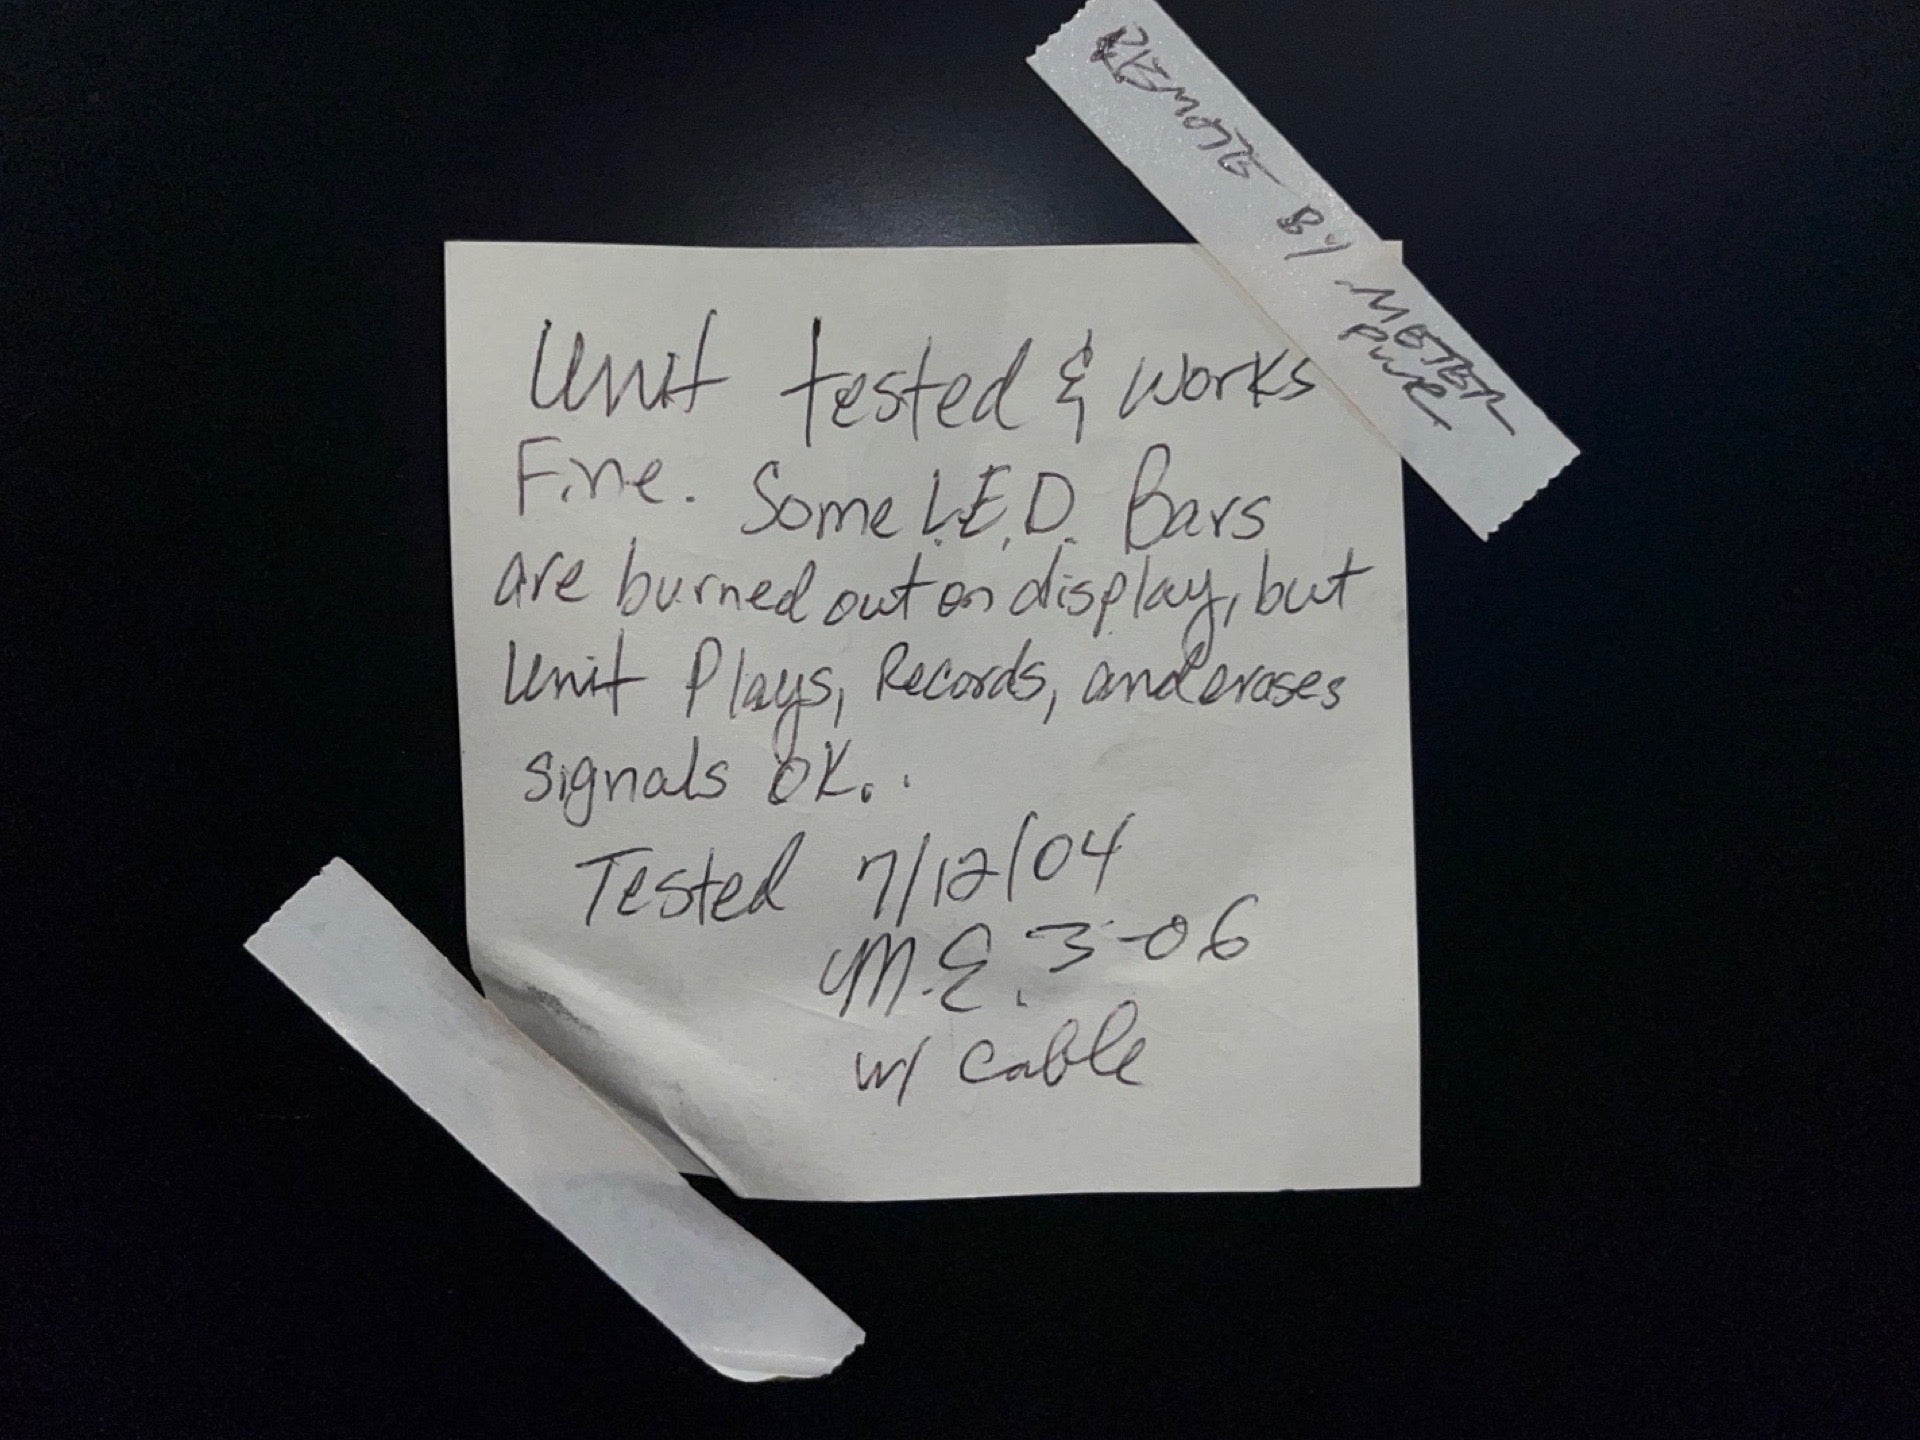 REMOTE BY METER
PWR
Unit tested & works
Fine. Some L.E.D. Bars
are burned out on display, but
Unit Plays, Records, and erases
signals OK..
Tested 7/12/04
M.E. 3-06
w/ cable